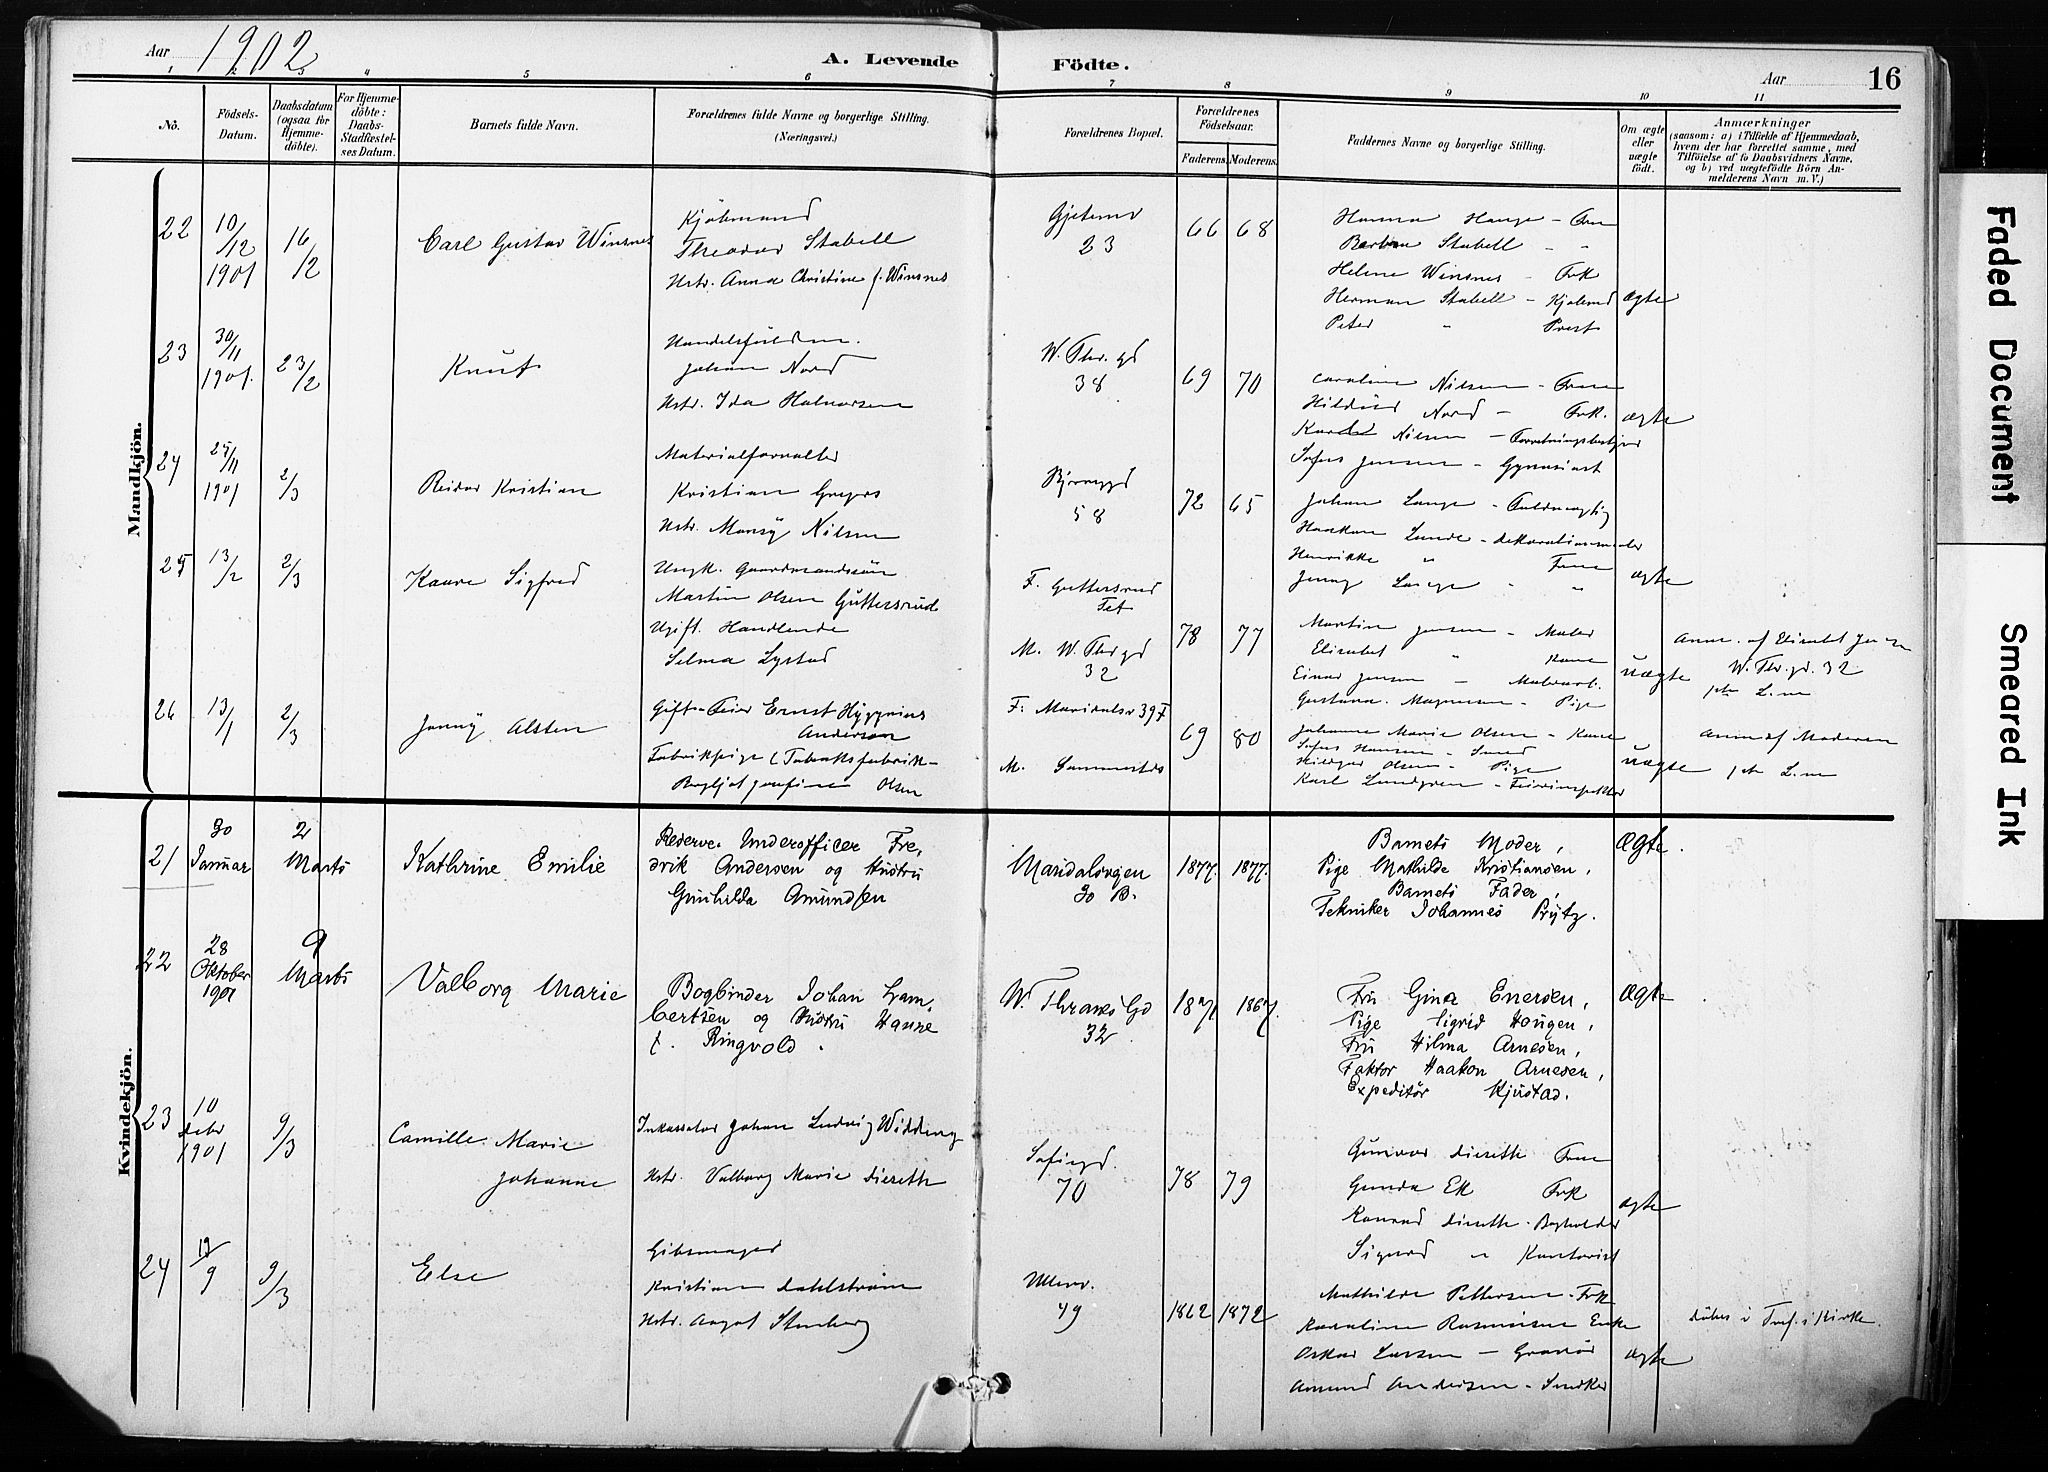 Aar 1902
A. Levende Födte.
Aar
16
1 2 3 4 5 6 7 8 9 10 11
No.
Födsels-Datum.
Daabsdatum (ogsaa for Hjemme-döbte).
For Hjemme-döbte: Daabs-Stadfæstel-ses Datum.
Barnets fulde Navn.
Forældrenes fulde Navne og borgerlige Stilling. (Næringsvei.)
Forældrenes Bopæl.
Forældrenes Födselsaar.
Faderens. Moderens.
Faddernes Navne og borgerlige Stilling.
Om ægte eller uægte födt.
Anmærkninger
(saasom: a) i Tilfælde af Hjemmedaab, hvem der har forrettet samme, med Tilföielse af to Daabsvidners Navne, og b) ved uægtefödte Börn An-melderens Navn m. V.)
Mandkjön.
22 10/12 1901 16/2 Carl Gustav Winsnes
Kjöbmand
Theodor Stabell
Hstr. Anna Christine f. Winsnes
23
66 68
Hanna Hauge - Frue
Stabell - "
Helene Winsnes - Frk
Herman Stabell - Kjøbmd
Peter " Prest
ægte
23 30/11 1901. 23/2 Knut
Johan Nord
Hstr. Ida Halvorsen
W. Thr. gd
38
69 70
Caroline Nilsen - Frue
Nord - Frk.
Nilsen - Forretningsbestyrer
Jensen - Gymnasiast
ægte
24 25/11 1901 2/3 Reidar Kristian
Materialforvalter
Kristian
Hstr. Nilsen
58
72 65
Johan Lange - Fuldmægtig
Haakon Lunde - dekorationsmaler
Henrikke " Frue
Jenny Lange " "
ægte
25 13/2 2/3 Kaare Sigfred
Ungk. Gaardmandssön
Martin Olsen Guttersrud
Ugift. Handlende
Selma Lystad
F. Guttersrud
Fet
M. W. Thr gd
32
78 77
Martin Jensen - Maler
Elisabet " Kone
Einar Jensen - Malerarb.
Gustava. Magnusen - Pige
uægte
Anm. af Elisabet Jensen
W. Thr. gd. 32
26 13/1 2/3 Jonny Alsten
Gift - Feier Ernst
Anderson
Fabrikpige (Tobaksfabrik -
Olsen
F. Maridalsv 39 F
M.
69 80
Johanne Marie Olsen - Kone
Hansen - Smed
Olsen - Pige
Karl Lundgren - Feierinspektør
uægte
Anm af Moderen
Kvindekjön.
21 30 Januar 2 Marts Kathrine Emilie
Reserve. Underofficer Fre,
drik Andersen og Hustru
Gunhilda Amundsen
Maridalsvgen
30 B.
1877. 1877.
Barnets Moder,
Pige Mathilde Kristiansen,
Barnets Fader,
Tekniker Johannes Prytz.
Ægte.
22 28 Oktober 1901 9 Marts Valborg Marie
Bogbinder Johan Lam,
bertsen og Hustru Hanne
f. Ringvold.
W. Thranes Gd
32.
1871. 1867.
Fru Gina Enersen,
Pige Sigrid Hougen,
Fru Hilma Arnesen,
Faktor Haakon Arnesen,
Expeditör Kjustad.
Ægte
23 10 debr 1901 9/3 Camille Marie
Johanne
Inkassator Johan Ludvig Widding
Hstr. Valborg Marie Dieseth
Sofiegd.
70
78 79
Gunvor Dieseth Frue
Gunda Ek Frk
Konrad Dieseth - Bogholder
Sigurd " Kontorist
ægte
24 9 9/3 Else
Gibsmager
Kristian Dahlstrøm
Hstr. Aagot Stenberg
Ullevv.
49
1862 1872
Mathilde Pettersen - Frk
Karoline Rasmussen Enke
Oskar Larsen - Gravør
Amund Andersen - Snedker
ægte
döbes i Tref. i Kirke.
Faded Document
Smeared Ink